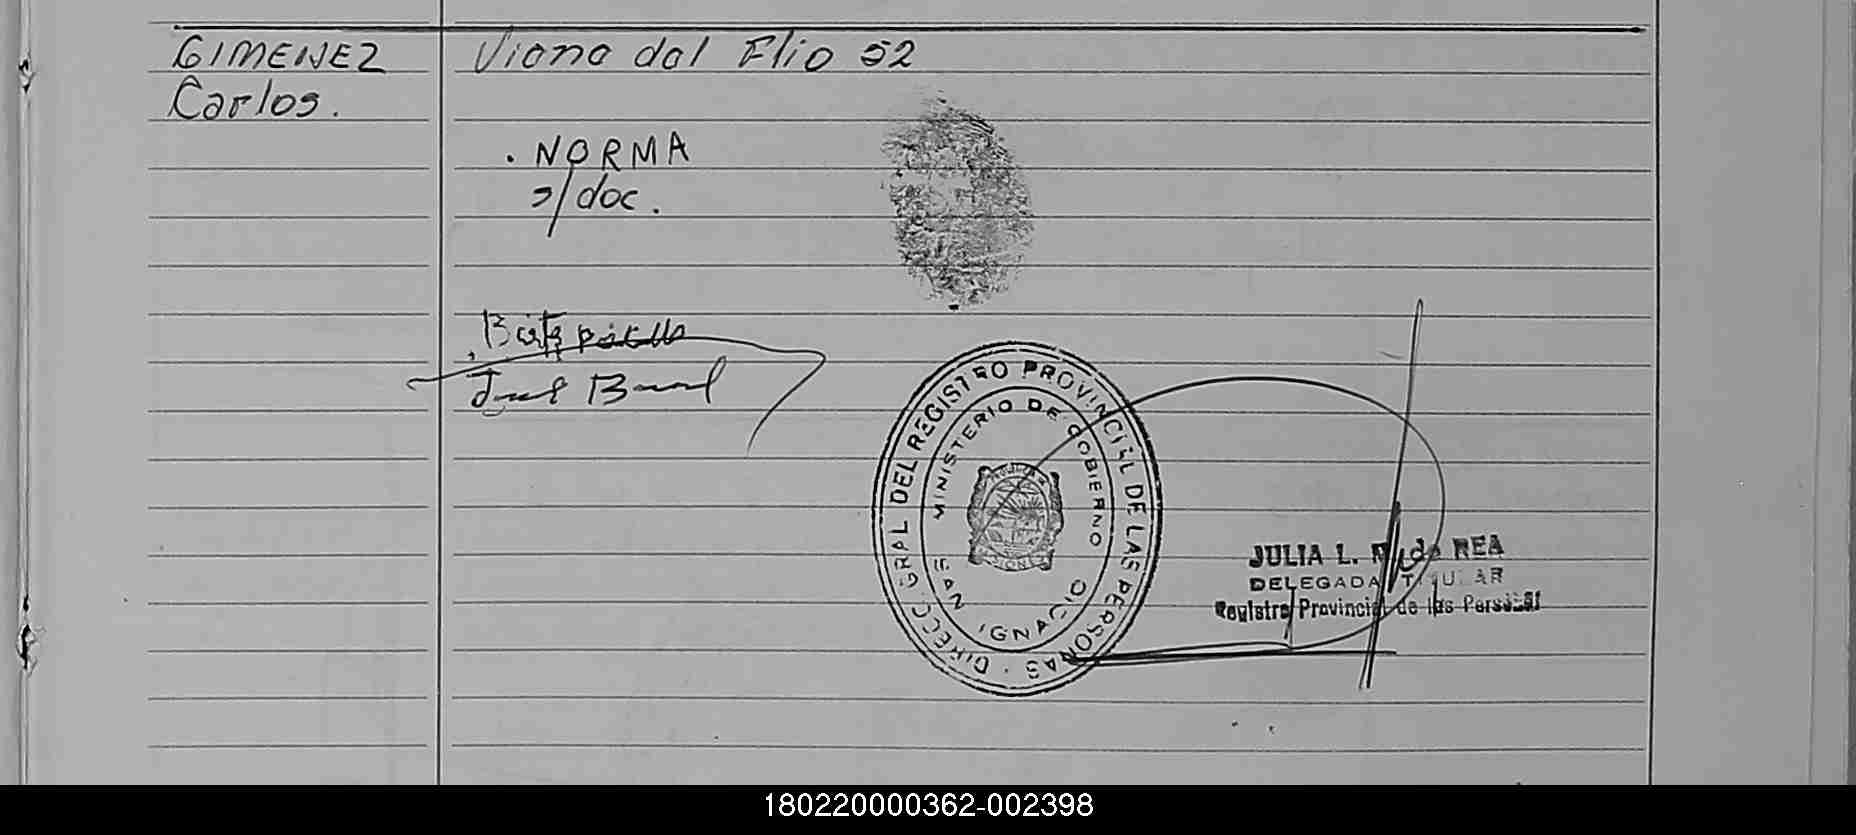 GIMENEZ
Carlos.
Viana dal Elio 52
. NORMA
s/doc.
DIRECC. GRAL DEL REGISTRO PROVINCIAL DE LAS PERSONAS
MINISTERIO DE GOBIERNO
SAN IGNACIO
MISIONES
JULIA L. de REA
DELEGADA TITULAR
Registro Provincial de las Personas
180220000362-002398